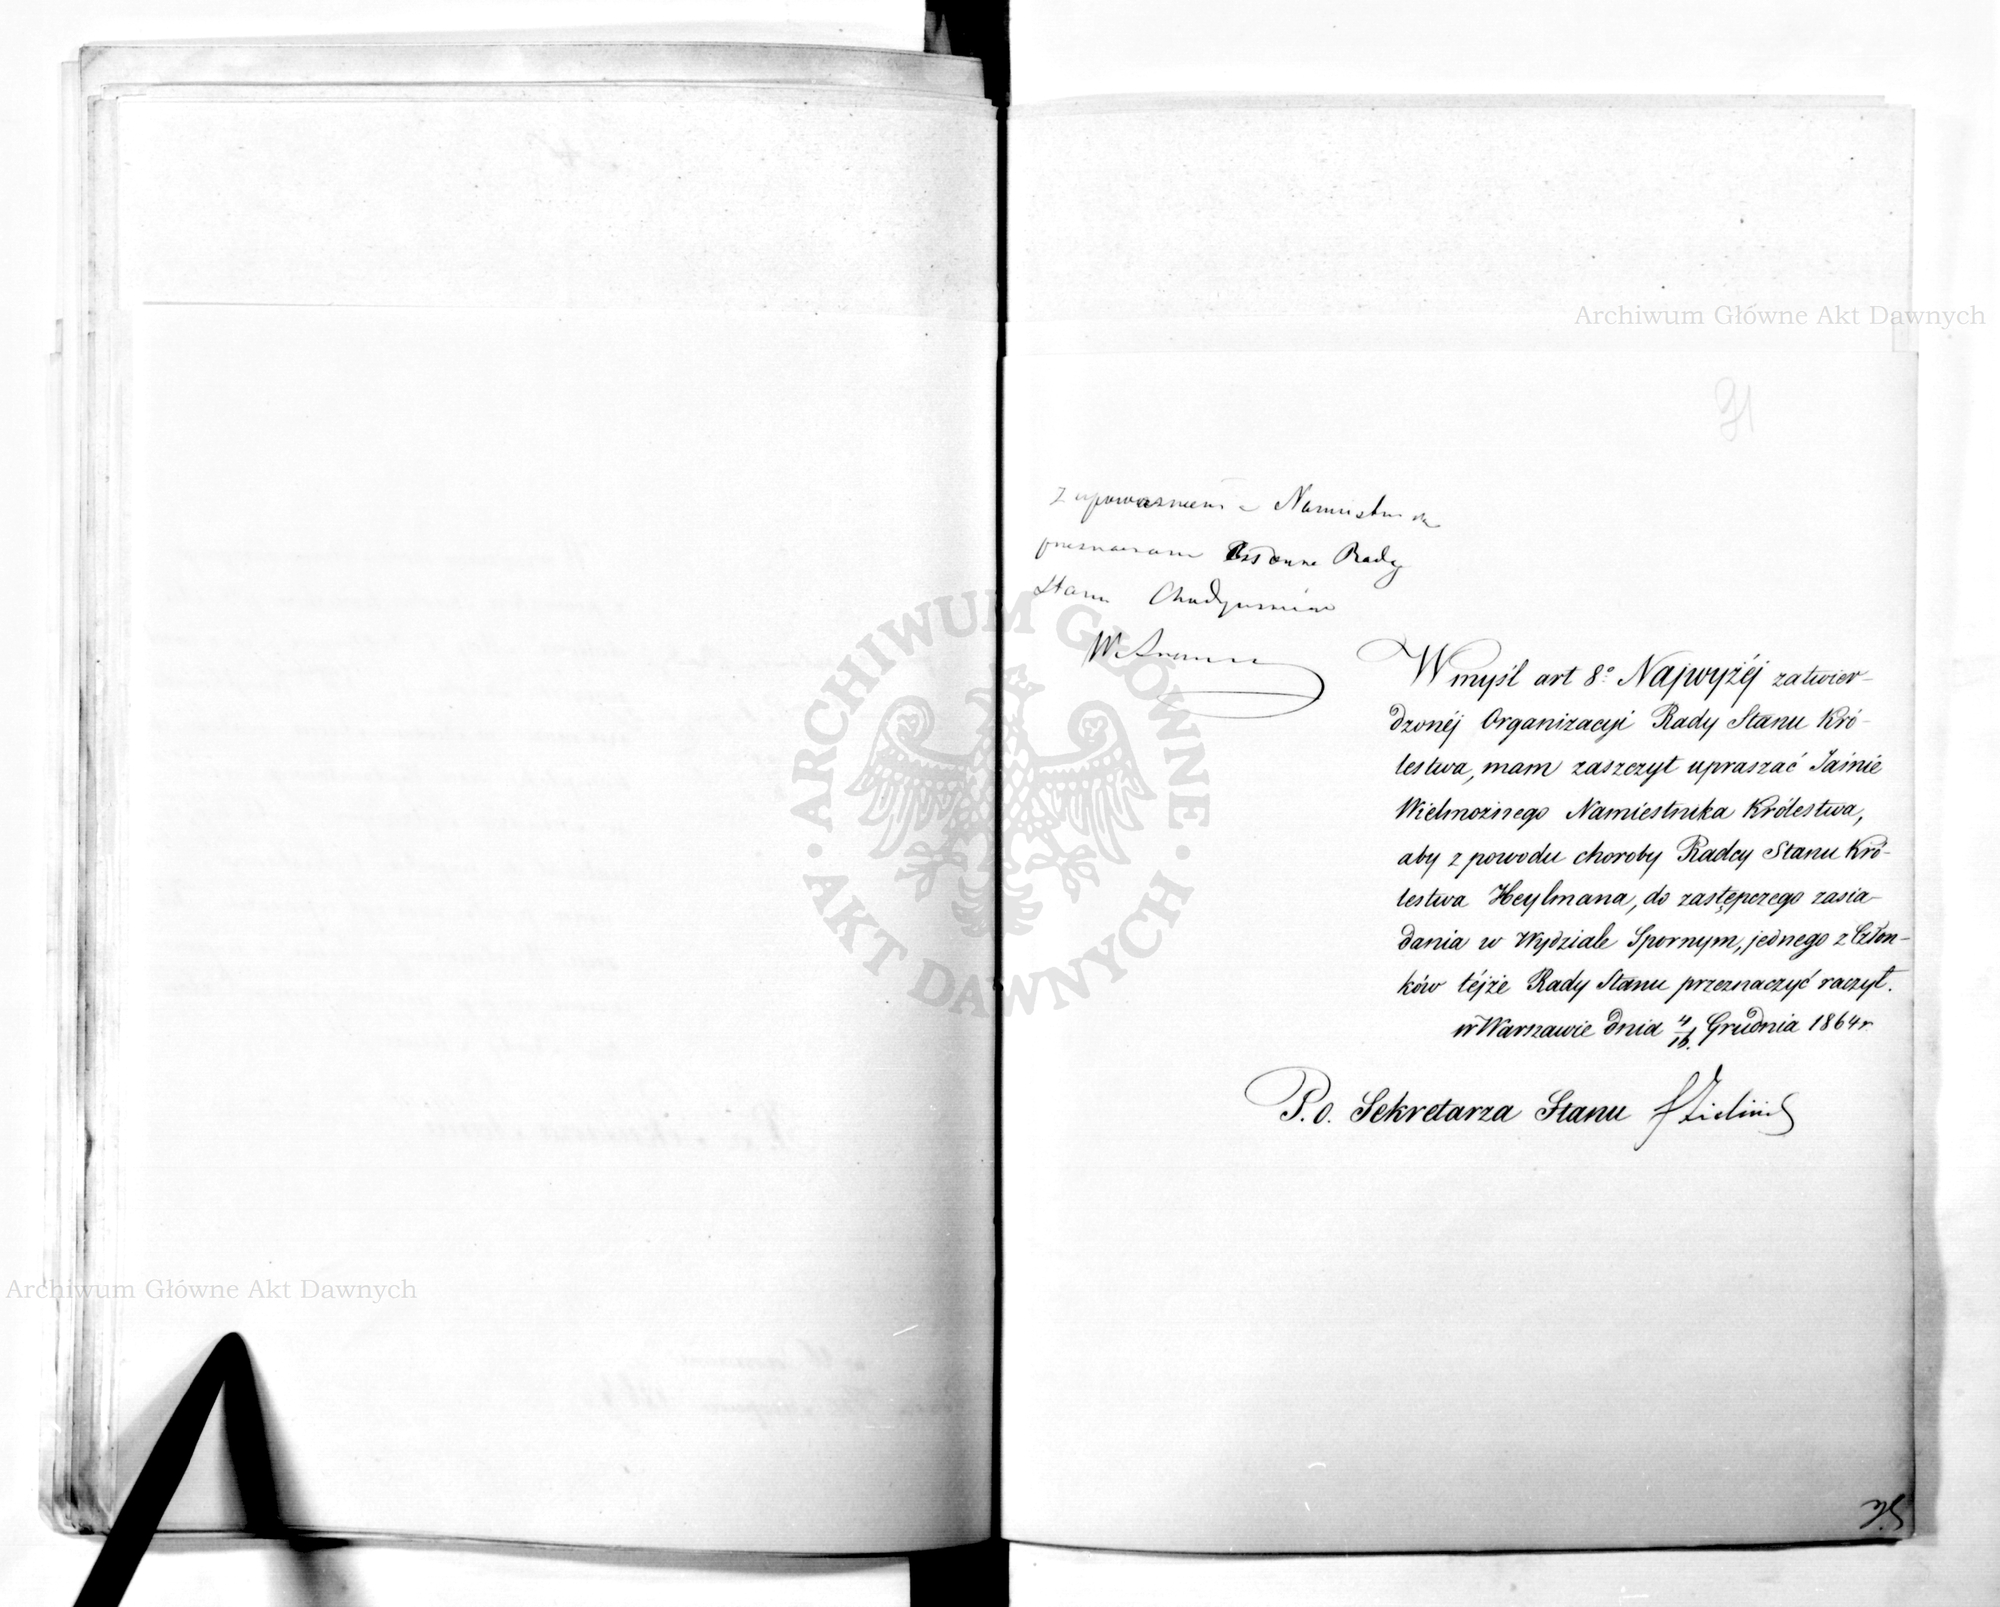 Archiwum Główne Akt Dawnych
91
z upoważnienia Namiestnika
przeznaczam Członka Rady
Stanu
W myśl art 8º Najwyżéj zatwier-
dzonéj Organizacyi Rady Stanu Kró-
lestwa, mam zaszczyt upraszać Jaśnie
Wielmożnego Namiestnika Królestwa,
aby z powodu choroby Radcy Stanu Kró-
lestwa Heylmana, do zastępczego zasia-
dania w Wydziale Spornym, jednego z Człon-
ków téjże Rady Stanu przeznaczyć raczył.
w Warszawie dnia 4/16. Grudnia 1864 r
P. o. Sekretarza Stanu
ARCHIWUM GŁÓWNE · AKT DAWNYCH ·
Archiwum Główne Akt Dawnych